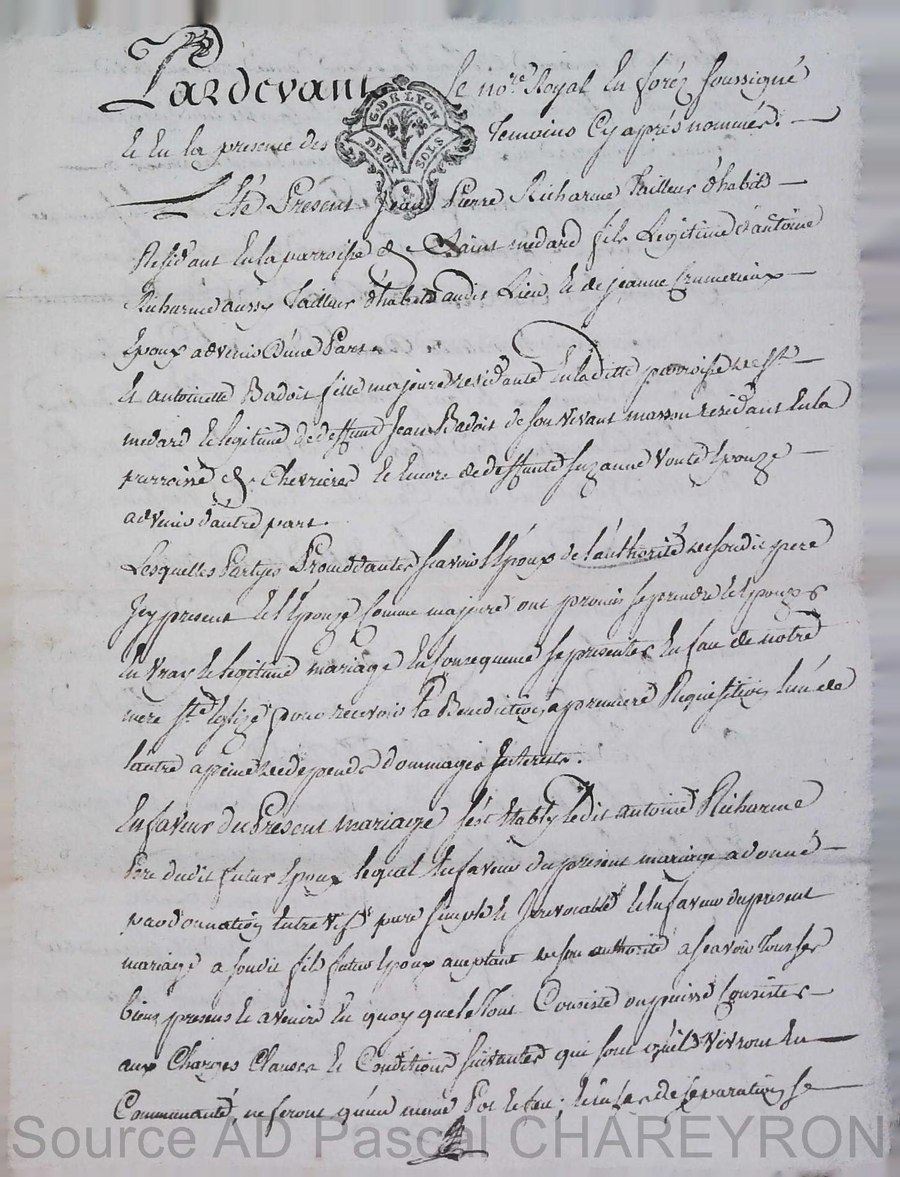 Pardevant le no.re Royal En forêz soussigné
Et En la presence des Temoins Cy après nommés.
G. DE LYON
DEUX SOLS
Eté Present Jean Pierre Richarme Tailleur d'habits
Residant En la parroisse de Saint medard fils Legitime d'antoine
Richarme aussy Tailleur d'habits audit Lieu et de jeanne
Epoux advenir D'une Part.
Et antoinette Badoit fille majeure residante En laditte parroisse de St
medard et legitime de deffunt Jean Badoit de son vivant masson residant En la
parroisse de Chevrieres et Encore de deffunte Suzanne Vente Epouze
advenir d'autre part.
Lesquelles Partyes Proceddantes scavoir l'Epoux de l'authorité de sondit pere
Jcy present et l'Epouze Comme majeure ont promis se prendre et Epouzer
En vray et legitime mariage En Consequence se presenter En face de notre
mere Ste Eglize pour recevoir la Benediction a premiere Requisition l'un de
l'autre a peine de depends dommages Interests.
En faveur du Present mariage s'est Etably ledit antoine Richarme
Pere dudit futur Epoux lequel En faveur du present mariage a donné
par donnation Entre vifs pure simple et Irrevocable et En faveur du present
mariage a sondit fils futur Epoux acceptant de son authorité a scavoir Tous ses
biens presens et avenir En quoy que le Tout Consiste ou puisse Consister
aux Charges Clauses et Conditions suivantes qui sont qu'ils Vivront En
Communauté, ne feront qu'un meme Pot et feu; et En Cas de separation se
Source AD Pascal CHAREYRON